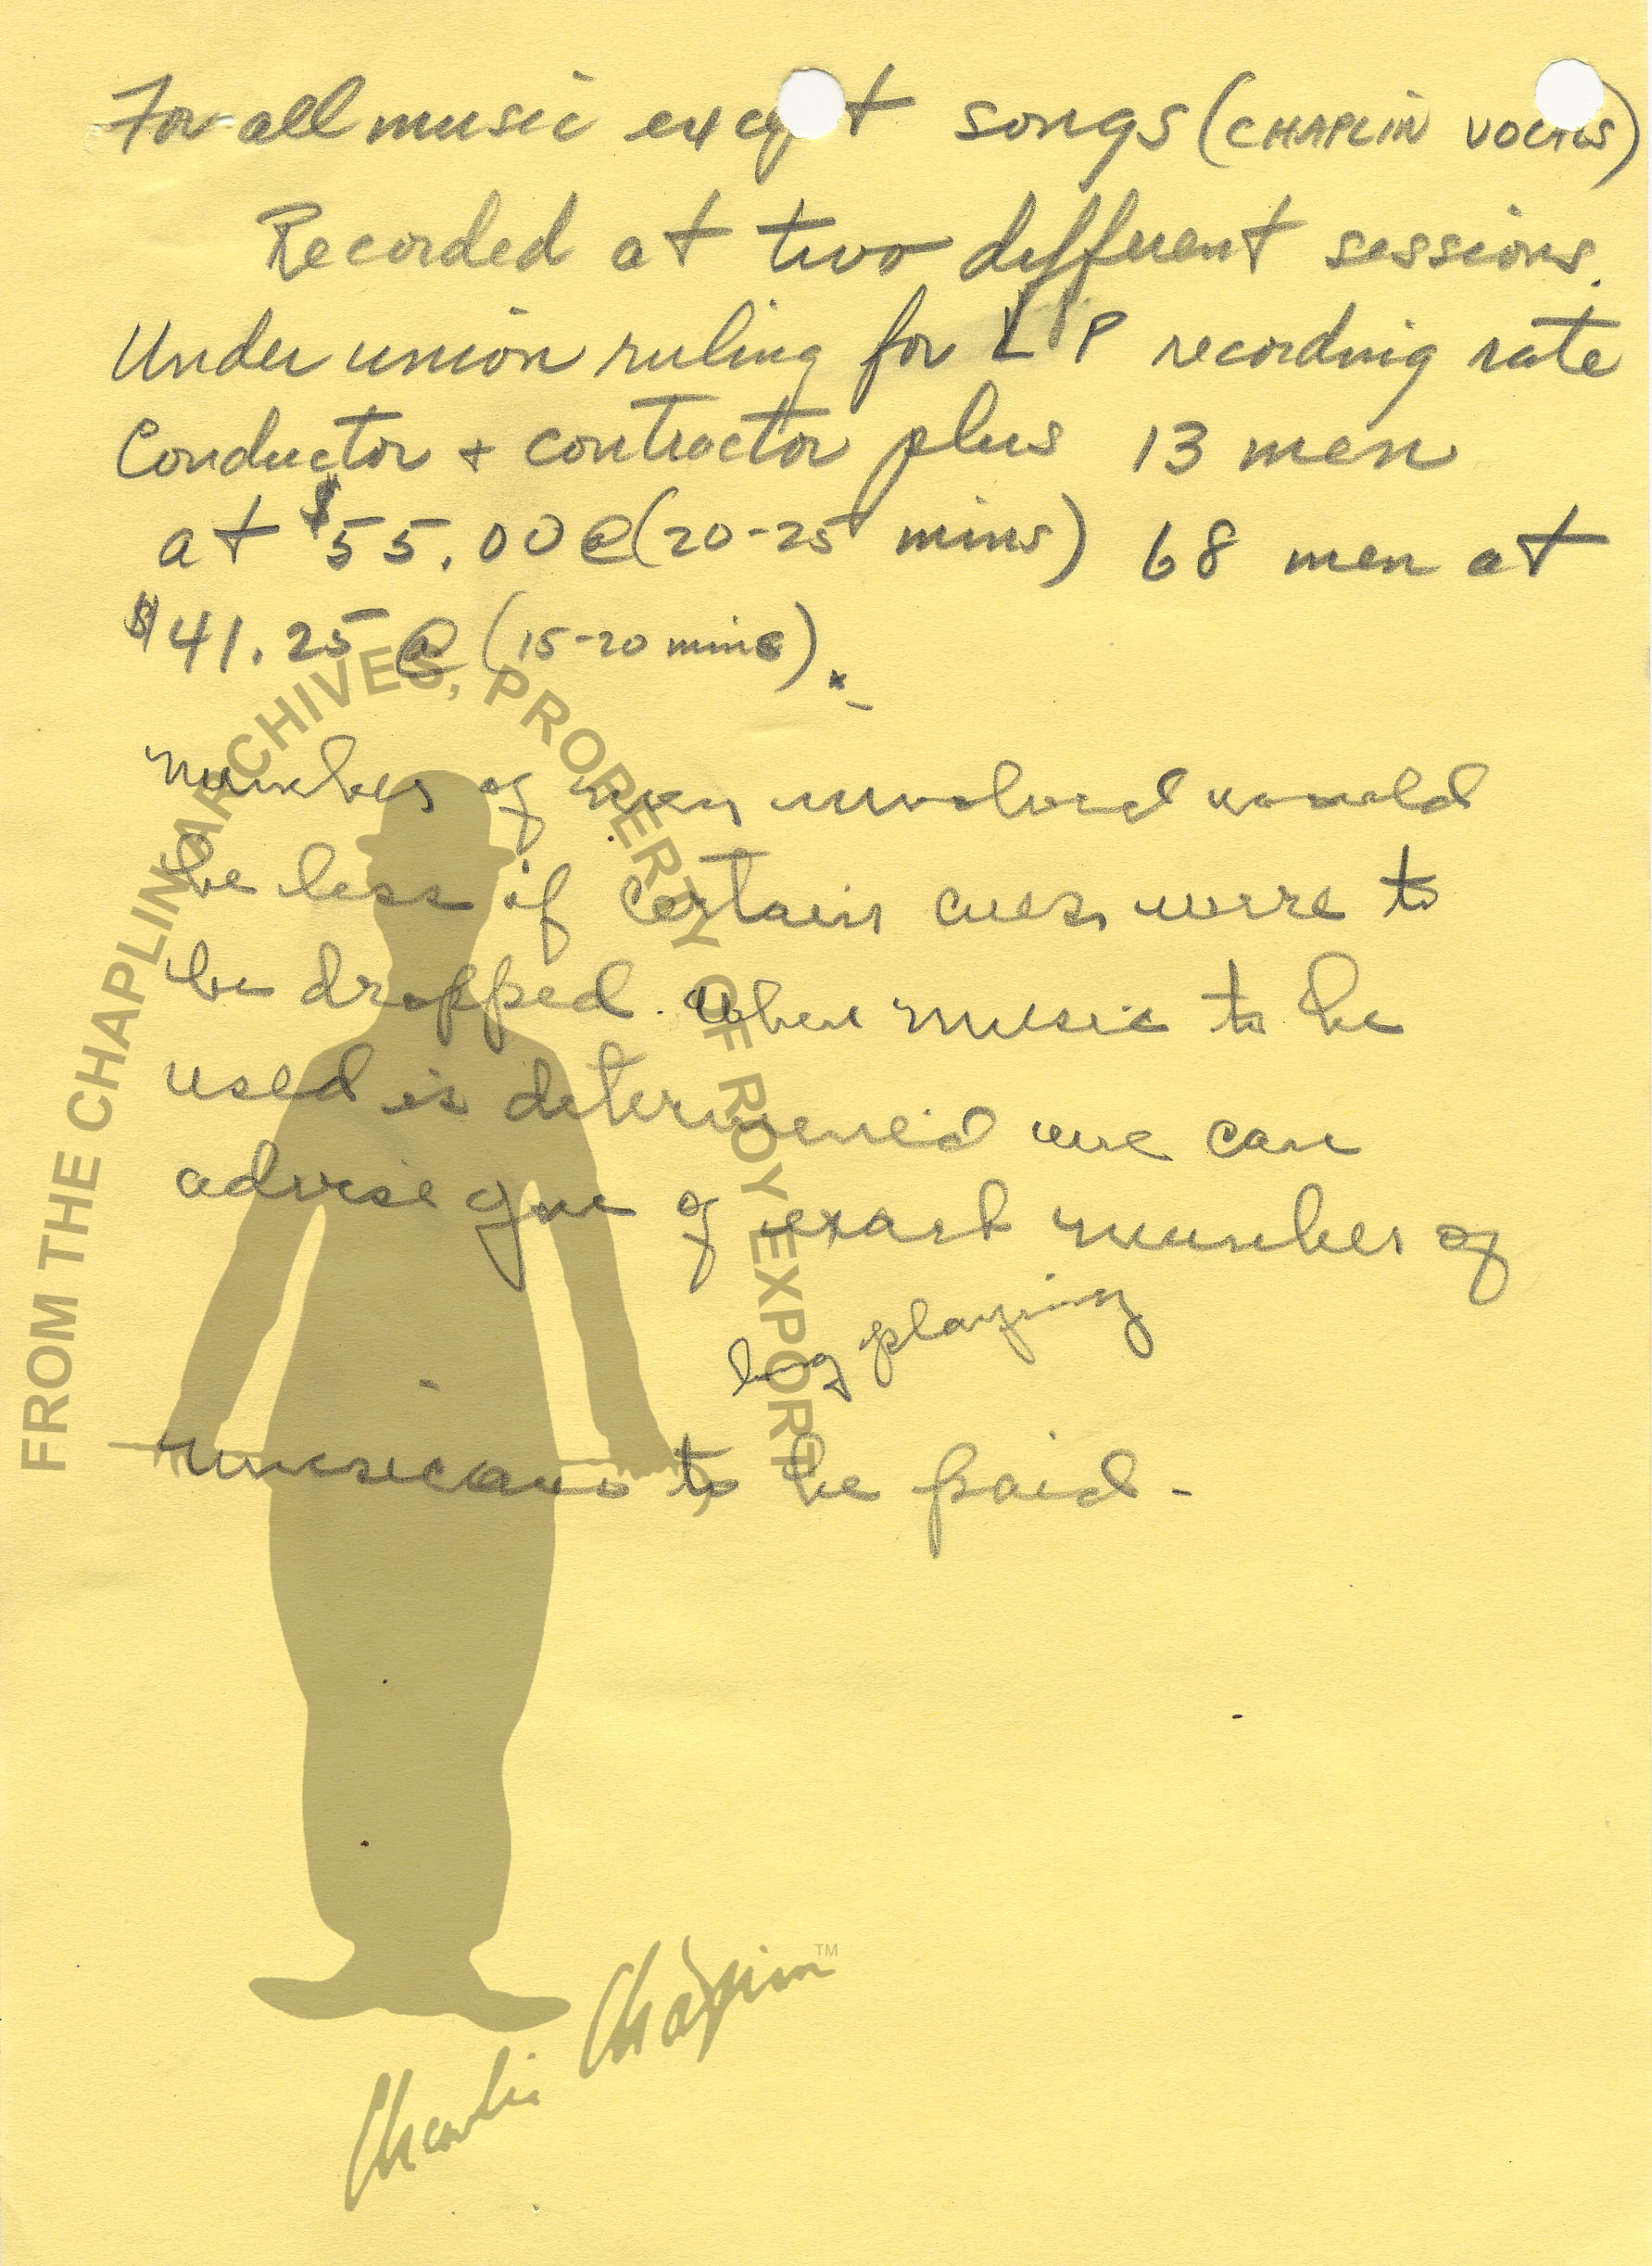 For all music except songs (CHAPLIN VOCALS)
Recorded at two different sessions.
Under union ruling for LP recording rate
Conductor + contractor plus 13 men
at $55.00 @ (20-25 mins) 68 men at
$41.25 @ (15-20 mins).
Number of men involved would
be less if certain cues were to
be dropped. When music to be
used is determined we can
advise you of exact number of
long playing
musicians to be paid -
FROM THE CHAPLIN ARCHIVES, PROPERTY OF ROY EXPORT
Charlie Chaplin TM